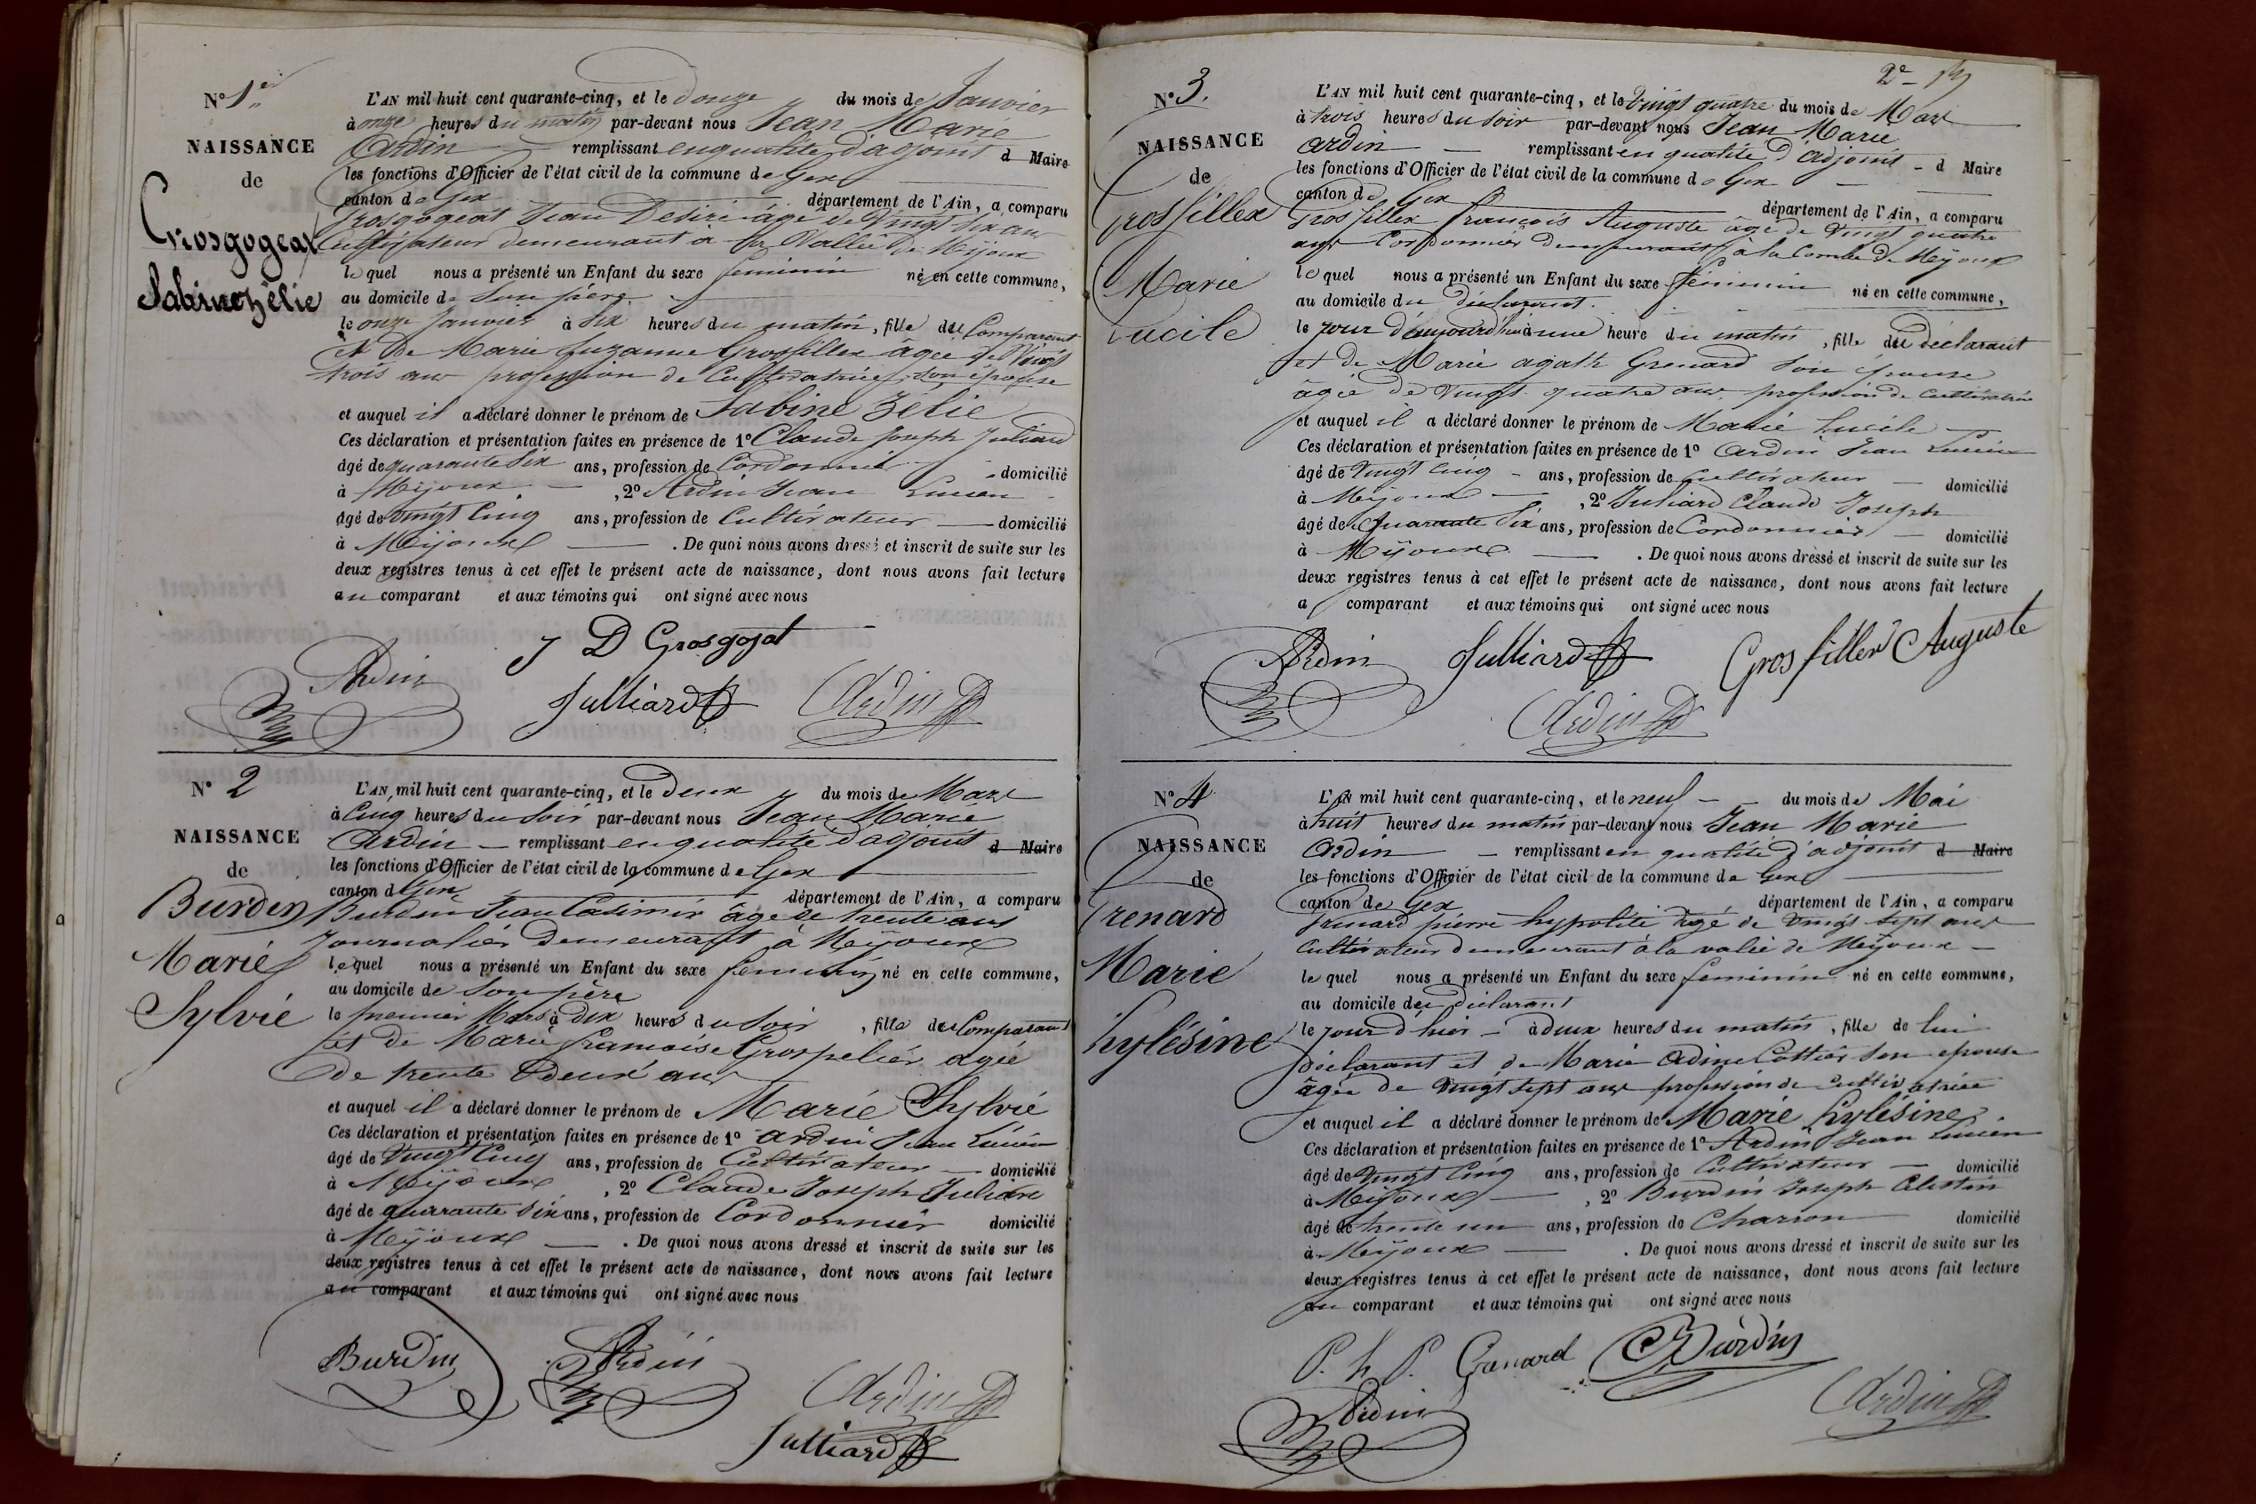 N° 1er
NAISSANCE
de
Grosgogeat
Sabine Zélie
L'AN mil huit cent quarante-cinq, et le douze du mois de Janvier
à onze heures du matin par-devant nous Jean Marie
Ardin remplissant en qualité d'adjoint d Maire
les fonctions d'Officier de l'état civil de la commune de Gex
canton de Gex département de l'Ain, a comparu
Grosgogeat Jean Désiré âgé de vingt six ans
Cultivateur demeurant à la Vallée de Mijoux
lequel nous a présenté un Enfant du sexe féminin né en cette commune,
au domicile de Son père
le onze Janvier à Six heures du matin, fille du Comparant
et de Marie Suzanne Grosfillex âgée de Vingt
trois ans profession de Cultivatrice, son épouse
et auquel il a déclaré donner le prénom de Sabine Zélie
Ces déclaration et présentation faites en présence de 1° Claude Joseph Juliard
âgé de quarante Six ans, profession de Cordonnié domicilié
à Mijoux, 2° Ardin Jean Lucien
âgé de vingt Cinq ans, profession de Cultivateur domicilié
à Meijoux. De quoi nous avons dressé et inscrit de suite sur les
deux registres tenus à cet effet le présent acte de naissance, dont nous avons fait lecture
au comparant et aux témoins qui ont signé avec nous
J D Grosgojat
Ardin
Julliard
Ardin
N° 2
NAISSANCE
de
Burdin
Marie
Sylvie
L'AN mil huit cent quarante-cinq, et le deux du mois de Mars
à Cinq heures du Soir par-devant nous Jean Marie
Ardin remplissant en qualité d'adjoint d Maire
les fonctions d'Officier de l'état civil de la commune de Gex
canton d Gex département de l'Ain, a comparu
Burdin Jean Casimir âgé de trente ans
Journalier demeurant à Meijoux
lequel nous a présenté un Enfant du sexe féminin né en cette commune,
au domicile de Son père
le premier Mars à dix heures du Soir, fille du Comparant
et de Marie françoise Grospelier agée
de trente deux ans
et auquel il a déclaré donner le prénom de Marie Sylvie
Ces déclaration et présentation faites en présence de 1° Ardin Jean Lucien
âgé de Vingt Cinq ans, profession de Cultivateur domicilié
à Meijoux, 2° Claude Joseph Juliard
âgé de quarante Six ans, profession de Cordonnier domicilié
à Meijoux. De quoi nous avons dressé et inscrit de suite sur les
deux registres tenus à cet effet le présent acte de naissance, dont nous avons fait lecture
au comparant et aux témoins qui ont signé avec nous
Burdin
Ardin
Ardin
Julliard
2e
N° 3.
NAISSANCE
de
Grosfillex
Marie
Lucile
L'AN mil huit cent quarante-cinq, et le Vingt quatre du mois de Mars
à trois heures du Soir par-devant nous Jean Marie
Ardin remplissant en qualité d'adjoint d Maire
les fonctions d'Officier de l'état civil de la commune de Gex
canton de Gex département de l'Ain, a comparu
Grosfillex François Auguste âgé de Vingt quatre
ans Cordonnier demeurant à la Combe de Meijoux
lequel nous a présenté un Enfant du sexe féminin né en cette commune,
au domicile du déclarant.
le jour d'aujourd'hui à une heure du matin, fille du déclarant
et de Marie agath Grenard Son épouse
âgée de Vingt quatre ans profession de Cultivatrice
et auquel il a déclaré donner le prénom de Marie Lucile
Ces déclaration et présentation faites en présence de 1° Ardin Jean Lucien
âgé de Vingt Cinq ans, profession de Cultivateur domicilié
à Meijoux, 2° Juliard Claude Joseph
âgé de Quarante Six ans, profession de Cordonnier domicilié
à Mijoux. De quoi nous avons dressé et inscrit de suite sur les
deux registres tenus à cet effet le présent acte de naissance, dont nous avons fait lecture
a comparant et aux témoins qui ont signé avec nous
Ardin
Julliard
Grosfillex Auguste
Ardin
N° 4
NAISSANCE
de
Grenard
Marie
hylésine
L'AN mil huit cent quarante-cinq, et le neuf du mois de Mai
à huit heures du matin par-devant nous Jean Marie
Ardin remplissant en qualité d'adjoint d Maire
les fonctions d'Officier de l'état civil de la commune de Gex
canton de Gex département de l'Ain, a comparu
Grenard pierre hypolite âgé de Vingt Sept ans
Cultivateur demeurant à la valée de Meijoux
lequel nous a présenté un Enfant du sexe féminin né en cette commune,
au domicile du déclarant
le jour d'hier à deux heures du matin, fille de lui
déclarant et de Marie Adine Cottier Son épouse
âgée de Vingt Sept ans profession de Cultivatrice
et auquel il a déclaré donner le prénom de Marie hylésine.
Ces déclaration et présentation faites en présence de 1° Ardin Jean Lucien
âgé de Vingt Cinq ans, profession de Cultivateur domicilié
à Meijoux, 2° Burdin Joseph Célestin
âgé de trente un ans, profession de Charron domicilié
à Meijoux. De quoi nous avons dressé et inscrit de suite sur les
deux registres tenus à cet effet le présent acte de naissance, dont nous avons fait lecture
au comparant et aux témoins qui ont signé avec nous
P. h P. Grenard
Burdin
Ardin
Ardin